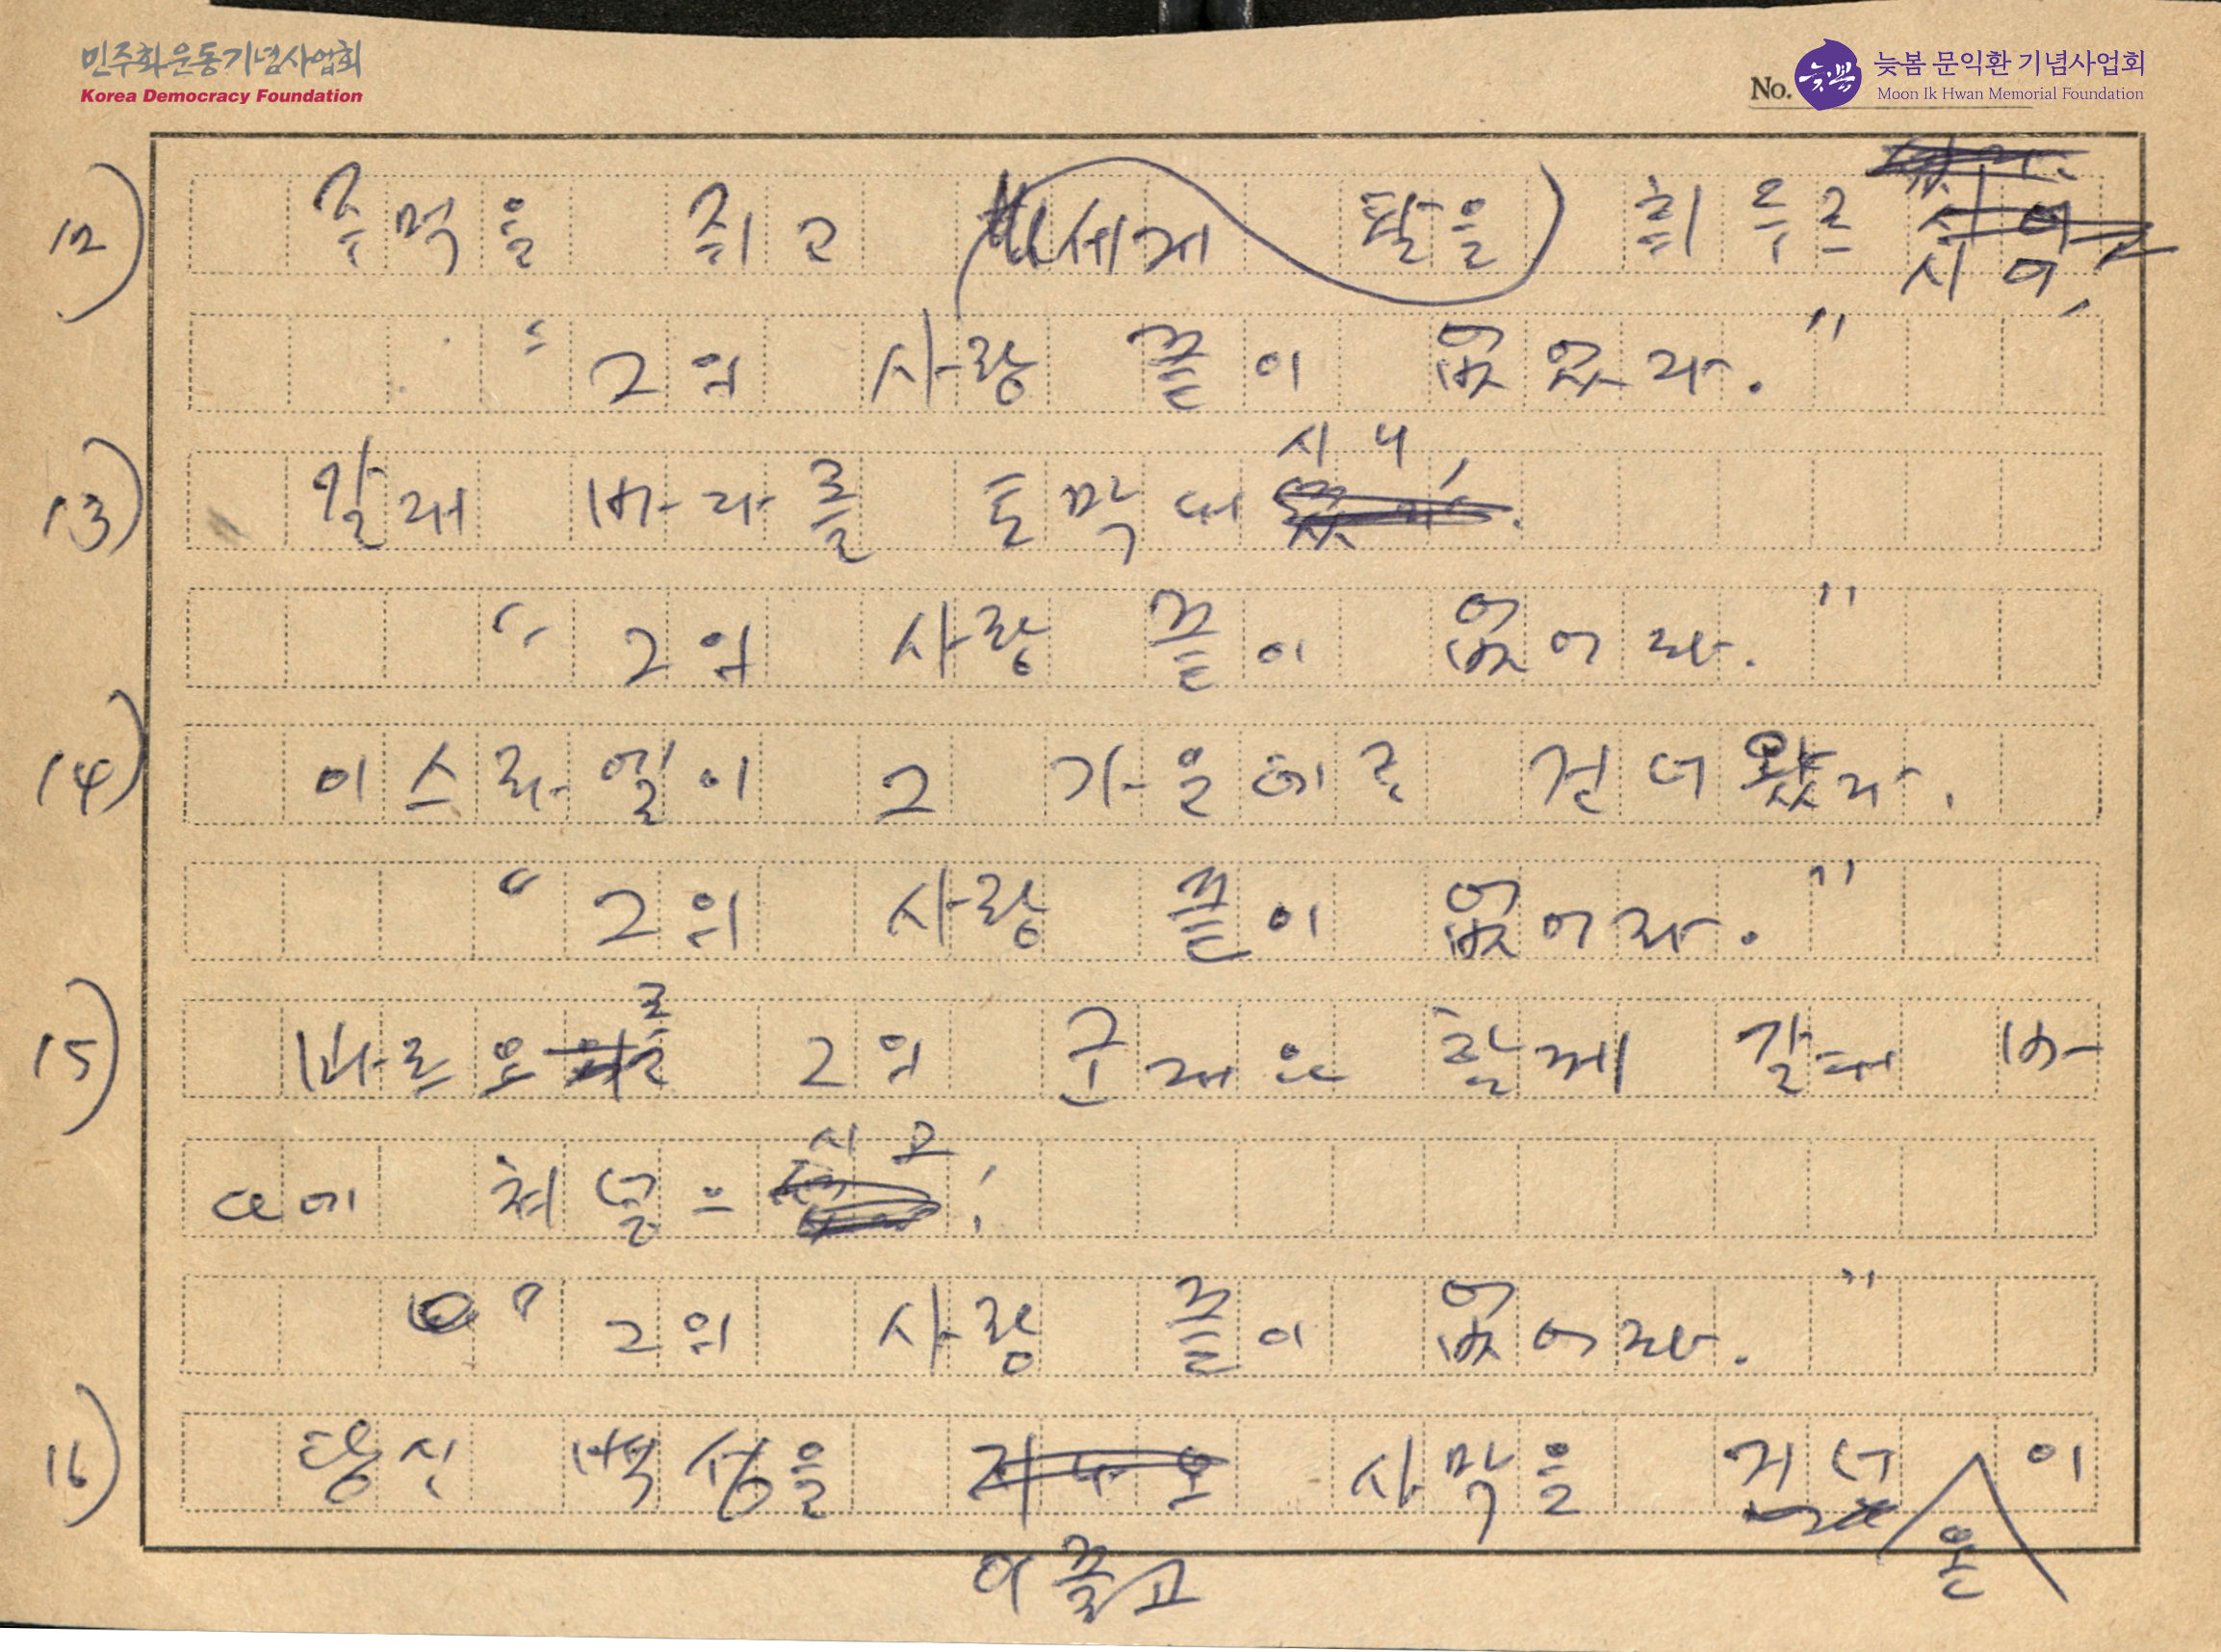 민주화운동기념사업회
Korea Democracy Foundation
No.
늦봄
늦봄 문익환 기념사업회
Moon Ik Hwan Memorial Foundation
12) 주먹을 쥐고 세게 팔을 휘두르시어,
"그의 사랑 끝이 없었라."
13) 갈래 바다를 토막내시니,
"그의 사랑 끝이 없어라."
14) 이스라엘이 그 가운데로 건너왔다.
"그의 사랑 끝이 없어라."
15) 바르오를 그의 군대와 함께 갈대 바
다에 처넣으시고,
"그의 사랑 끝이 없어라."
16) 당신 백성을 사막을 건너 이
이끌고 온